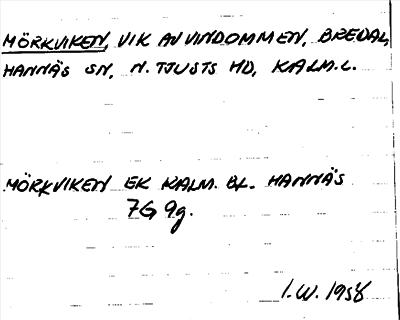 MÖRKVIKEN, VIK AV VINDOMMEN, BREDAL,
HANNÄS SN, N. TJUSTS HD, KALM. L.
MÖRKVIKEN EK KALM. BL. HANNÄS
7G 9g.
I.W. 1958